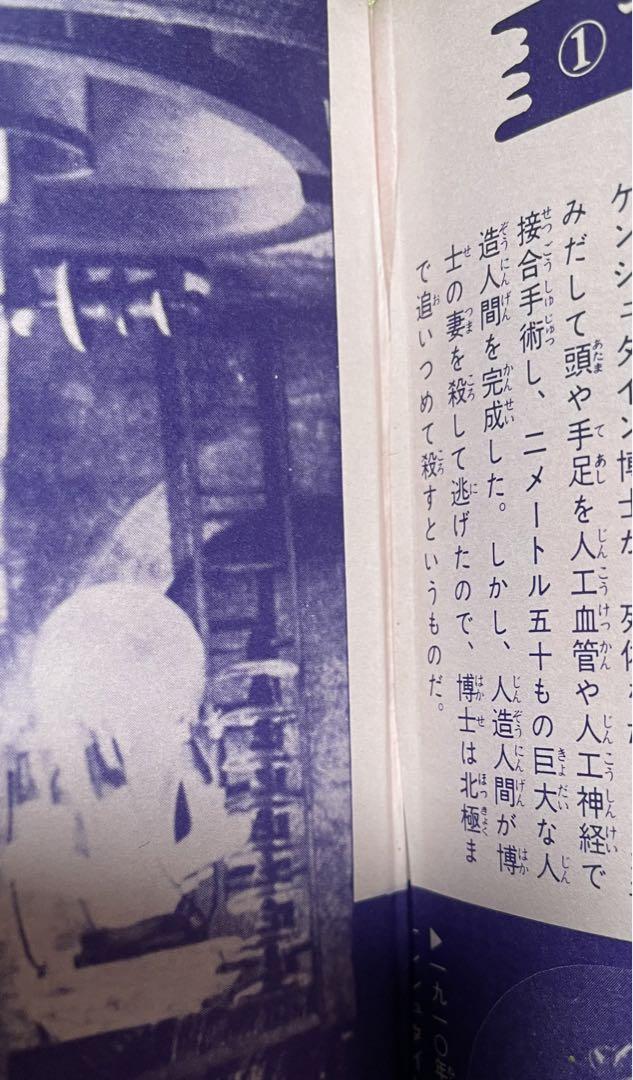 ①
ケンシュタイン博士が、死体を
みだして頭や手足を人工血管や人工神経で
接合手術し、二メートル五十もの巨大な人
造人間を完成した。しかし、人造人間が博
士の妻を殺して逃げたので、博士は北極ま
で追いつめて殺すというものだ。
▶一九一〇年